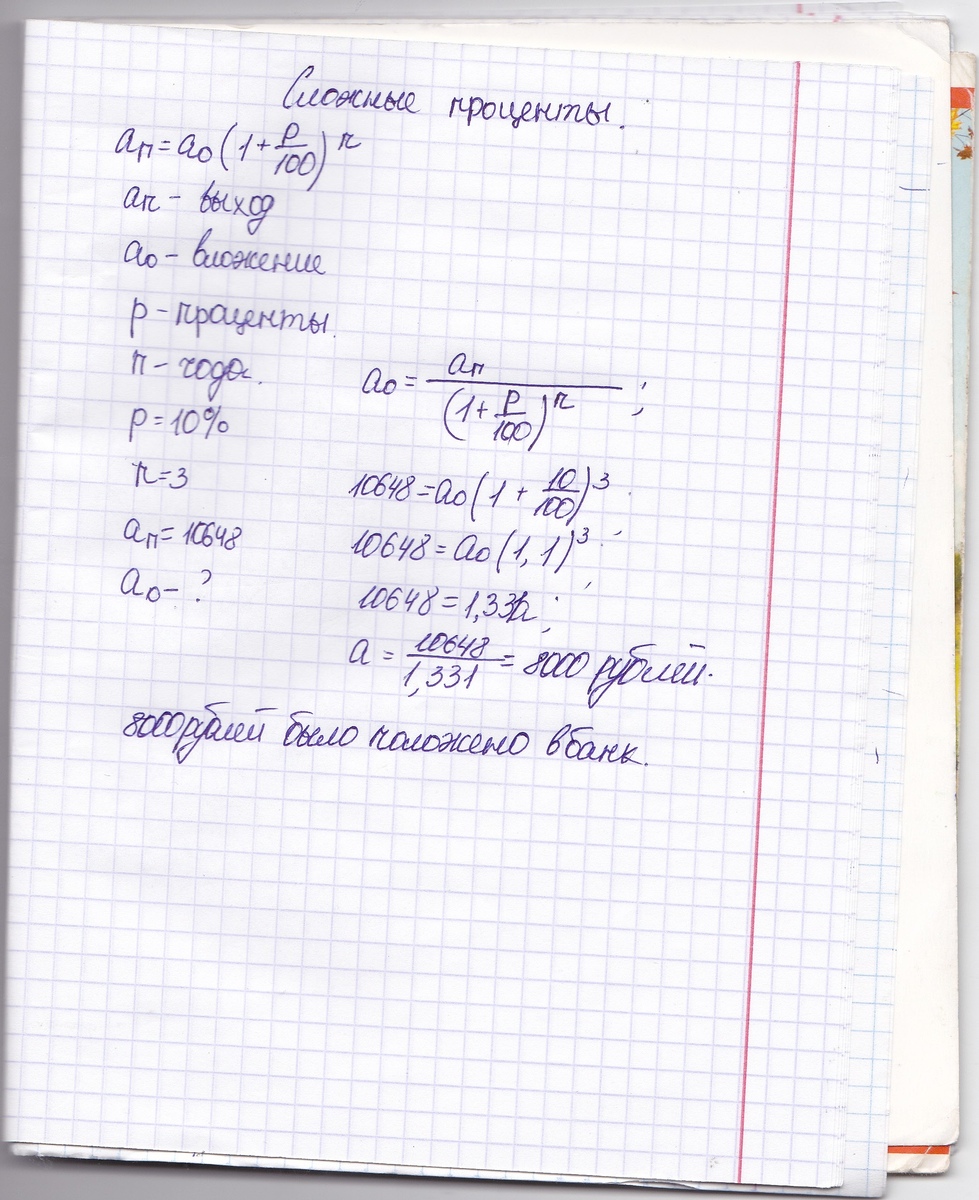 Сложные проценты.
aₙ = a₀(1 + p/100)ⁿ
aₙ – выход
a₀ – вложение
p – проценты.
n – года.
a₀ = aₙ/(1 + p/100)ⁿ ;
p = 10%
n = 3
10648 = a₀(1 + 10/100)³ ;
aₙ = 10648
10648 = a₀(1,1)³ ;
a₀ – ?
10648 = 1,331a ;
a = 10648/1,331 = 8000 рублей.
8000 рублей было положено в банк.